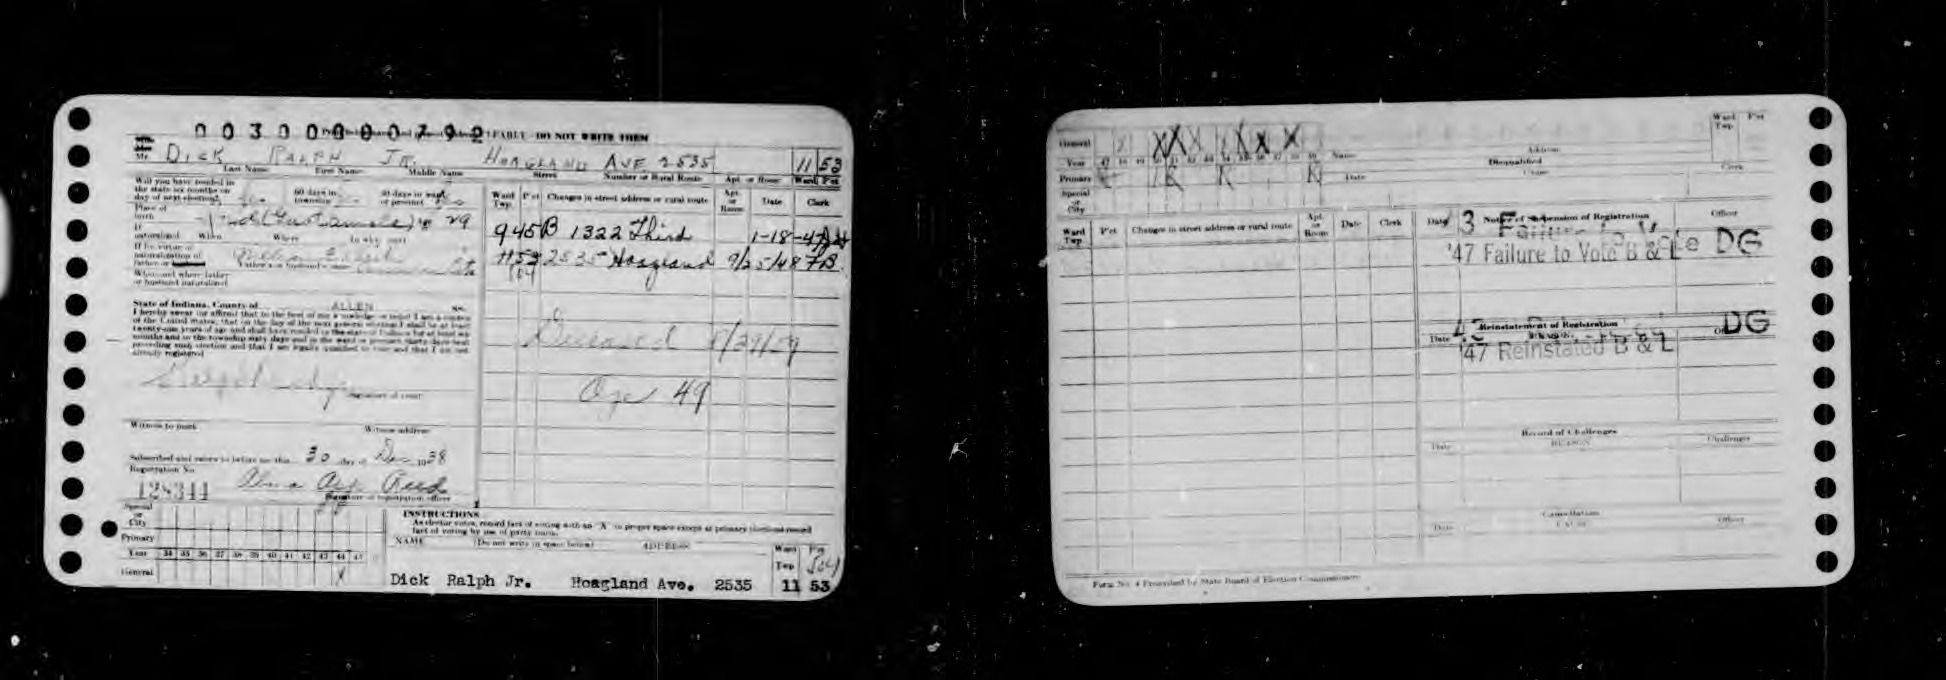 0030000792
PLEASE PRINT DO NOT WRITE THEM
Mr. DICK RALPH JR. HOAGLAND AVE 2535 11 53
Last Name First Name Middle Name Street Number or Rural Route Apt. or Room Ward Pct
Will you have resided in
the state six months on 60 days in 30 days in ward
day of next election? township or precinct
Place of
birth
If
naturalized When Where In why court
If by virtue of
naturalization of
father or husband Father's or husband's name
When and where father
or husband naturalized
State of Indiana, County of ALLEN SS.
I hereby swear (or affirm) that to the best of my knowledge or belief I am a citizen
of the United States; that on the day of the next general election I shall be at least
twenty-one years of age and shall have resided in the state of Indiana for at least six
months and in the township sixty days and in the ward or precinct thirty days next
preceding such election and that I am legally qualified to vote and that I am not
already registered
Signature of voter
Witness to mark Witness address
Subscribed and sworn to before me this 30 day of Dec 1938
Registration No.
128344 Reed
Signature of registration officer
Ward Twp. Pct Changes in street address or rural route Apt. or Room Date Clerk
9 45B 1322 Third 1-18-47
1153 2535 Hoagland 9/25/48 FB.
504
Deceased 8/29/59
Age 49
Special
or
City
Primary
Year 34 35 36 37 38 39 40 41 42 43 44 45
General X
INSTRUCTIONS
As elector votes, record fact of voting with an "X" in proper space except at primary elections record
fact of voting by use of party name.
NAME (Do not write in space below) ADDRESS Ward Twp Pct
504
Dick Ralph Jr. Hoagland Ave. 2535 11 53
General X X X X X X X X
Year 47 48 49 50 51 52 53 54 55 56 57 58 59 Name Address
Primary R R R R
Special
or
City
Disqualified
Date Cause Clerk
Ward Twp Pct
Ward Twp Pct Changes in street address or rural route Apt. or Room Date Clerk
Date Notice of Suspension of Registration Officer
3 Failure to Vote
'47 Failure to Vote B & L DG
Reinstatement of Registration
Date
'47 Reinstated B & L DG
Record of Challenges
Date REASON Challenger
Cancellation
Date CAUSE Officer
Form No. 4 Prescribed by State Board of Election Commissioners